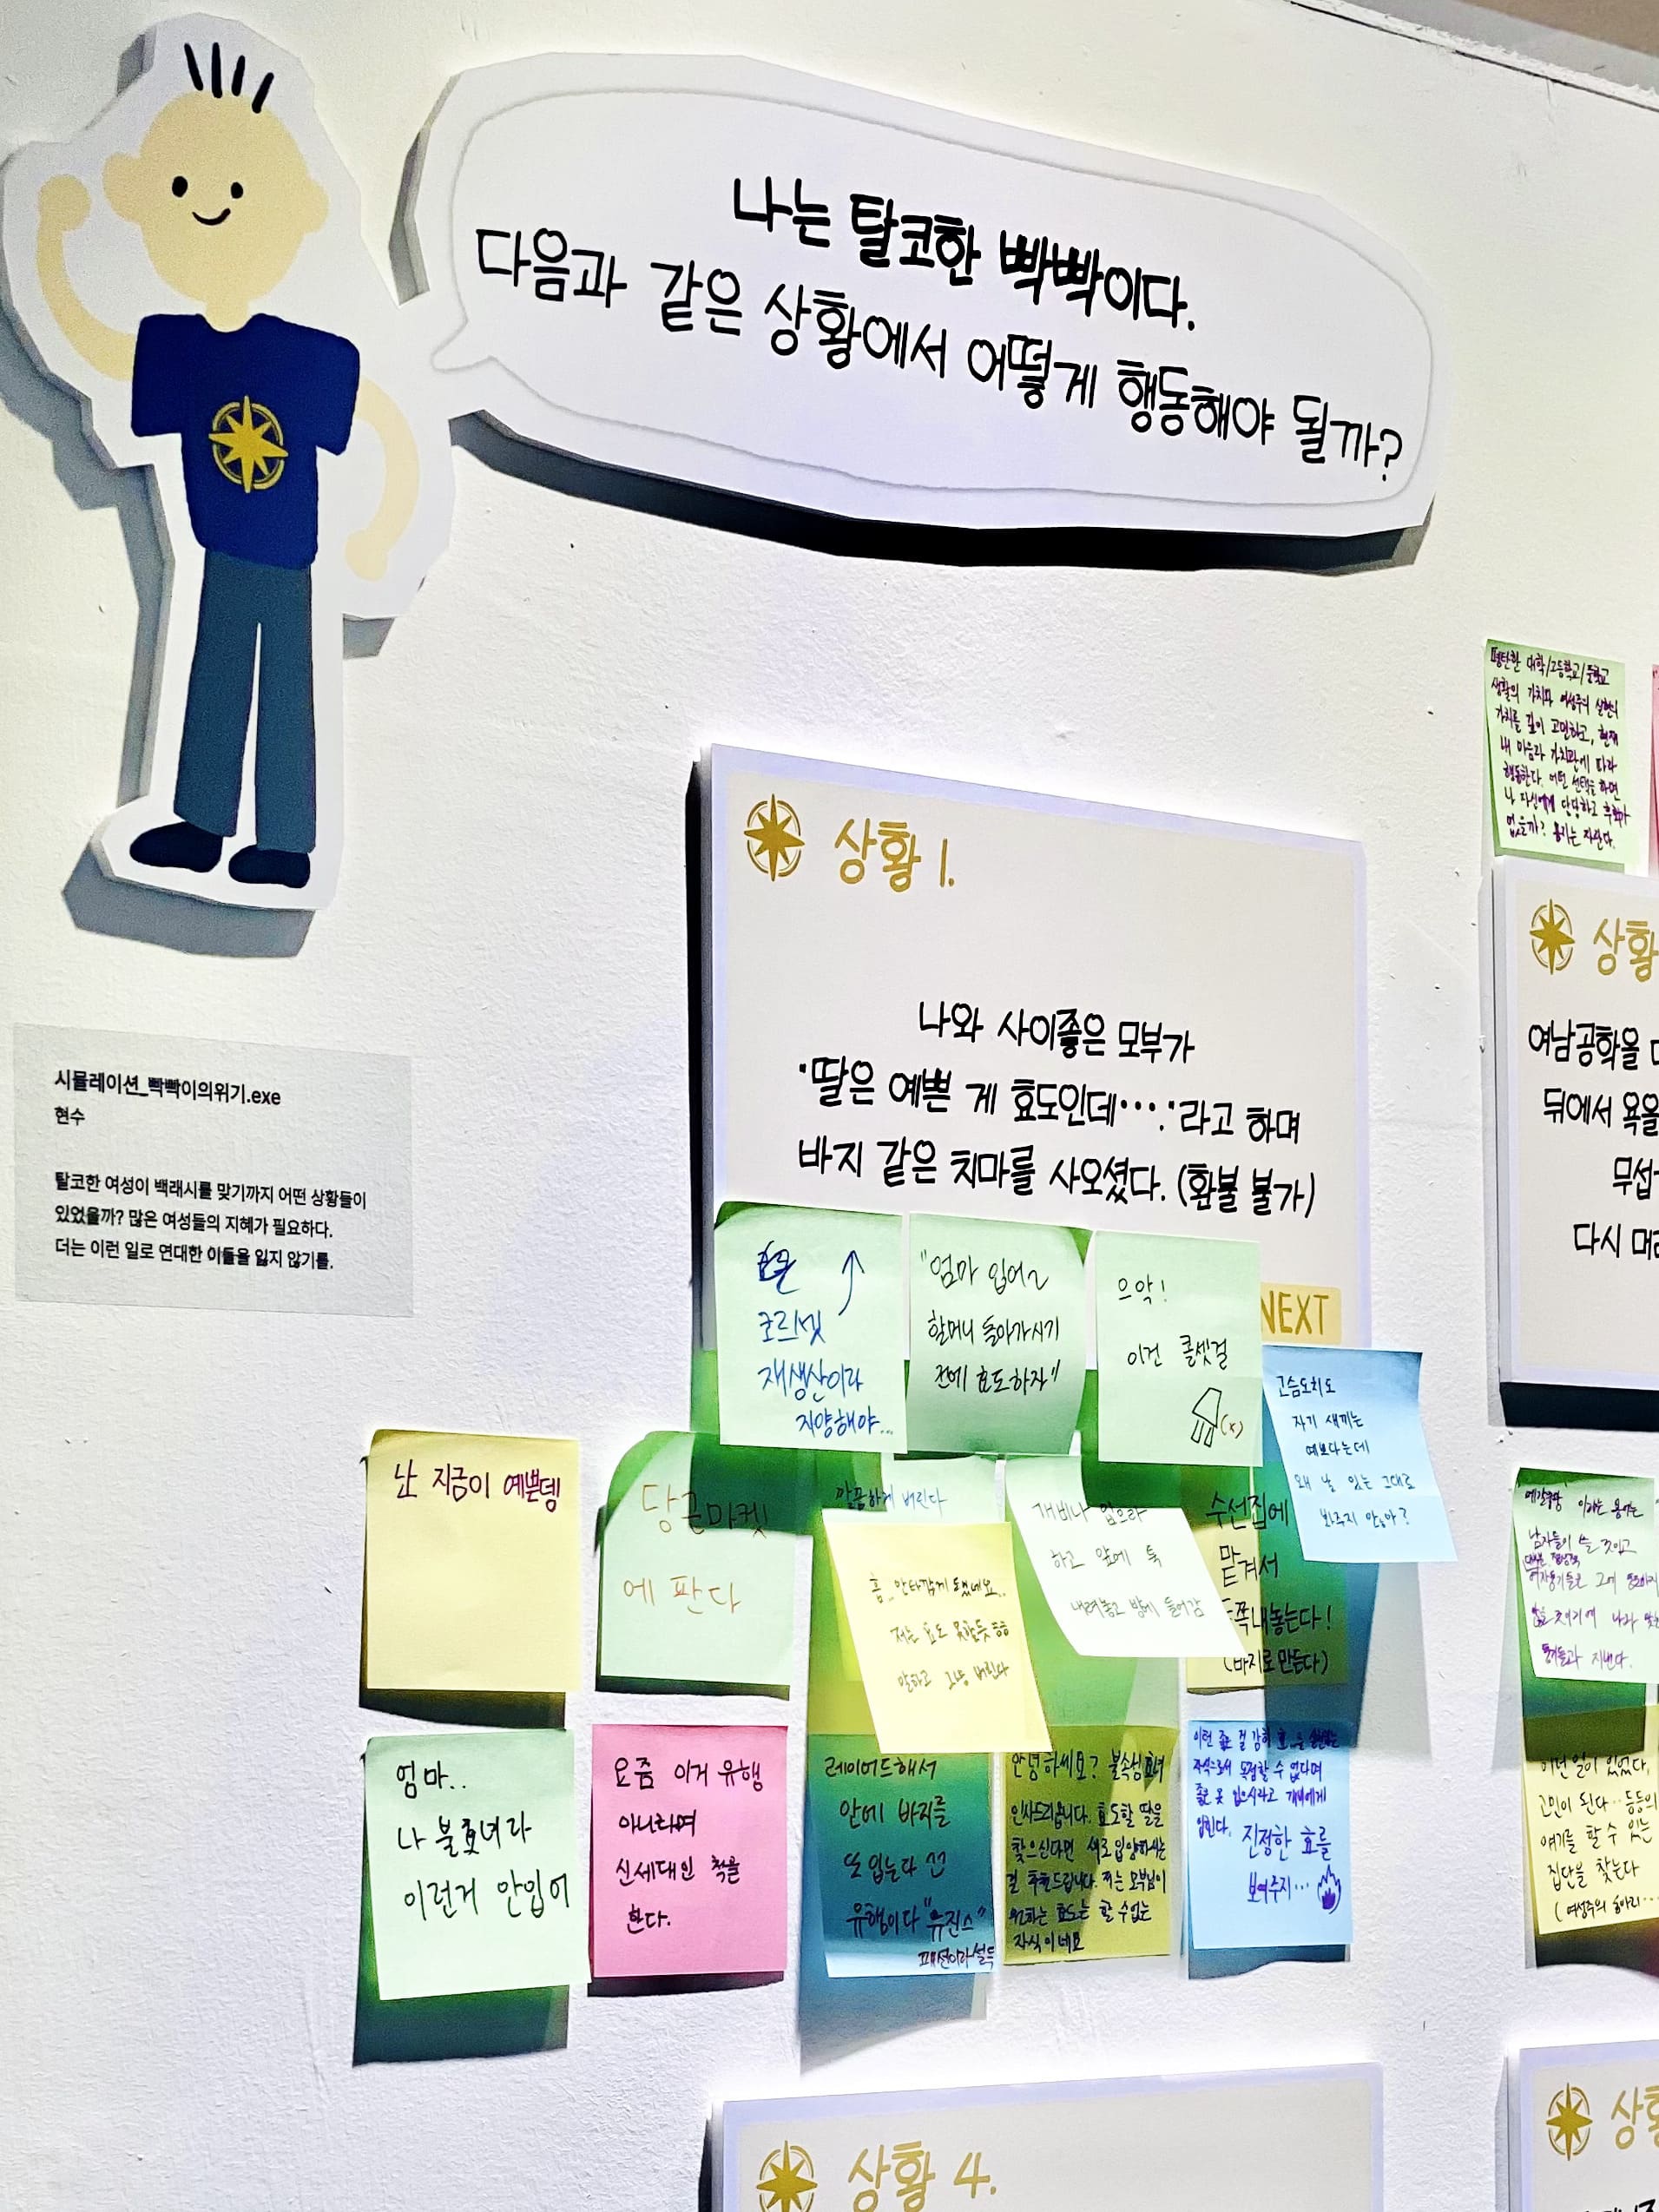 나는 탈코한 빡빡이다.
다음과 같은 상황에서 어떻게 행동해야 될까?
시뮬레이션_빡빡이의위기.exe
현수
탈코한 여성이 백래시를 맞기까지 어떤 상황들이
있었을까? 많은 여성들의 지혜가 필요하다.
더는 이런 일로 연대한 이들을 잃지 않기를.
상황 1.
나와 사이좋은 모부가
"딸은 예쁜 게 효도인데…."라고 하며
바지 같은 치마를 사오셨다. (환불 불가)
NEXT
코르셋
재생산이라
지양해야...
"엄마 입어~
할머니 돌아가시기
전에 효도하자"
으악!
이건 콜셋걸
(x)
고슴도치도
자기 새끼는
예쁘다는데
왜 날 있는 그대로
봐주지 않아?
난 지금이 예쁜뎅
당근마켓
에 판다
깔끔하게 버린다
흠_안타깝게 됐네요..
저는 효도 못할듯
말하고 그냥 버린다
개비나 입으라
하고 앞에 툭
내려놓고 방에 들어감
수선집에
맡겨서
쪽내놓는다!
(바지로 만든다)
엄마..
나 불효녀라
이런거 안입어
요즘 이거 유행
아니라며
신세대인 척을
한다.
레이어드해서
안에 바지를
또 입는다
유행이다 "뉴진스"
패션이라 설득
안녕하세요? 불속성효녀
인사드립니다. 효도할 딸을
찾으신다면 새로입양하시는
걸 추천드립니다. 저는 모부님이
원하는 효도는 할 수없는
자식이네요
이런 좋은 걸 감히
자식으로서 독점할 수 없다며
좋은 옷 입으시라고 개비에게
입힌다. 진정한 효를
보여주지…
평탄한 대학/고등학교/중학교
생활의 가치와 여성주의 실현의
가치를 깊이 고민하고, 현재
내 마음과 가치관에 따라
행동한다. 어떤 선택을 하면
나 자신에게 당당하고 후회가
없을까? 용기는 자산다.
상황
여남공학을
뒤에서 욕을
무섭
다시 머리
이라는 용어는
남자들이 쓸 것이고
통기들과 지낸다.
이런 일이 있었다,
고민이 된다.. 등등의
얘기를 할 수 있는
집단을 찾는다
(여성주의 동아리…
상황 4.
상황